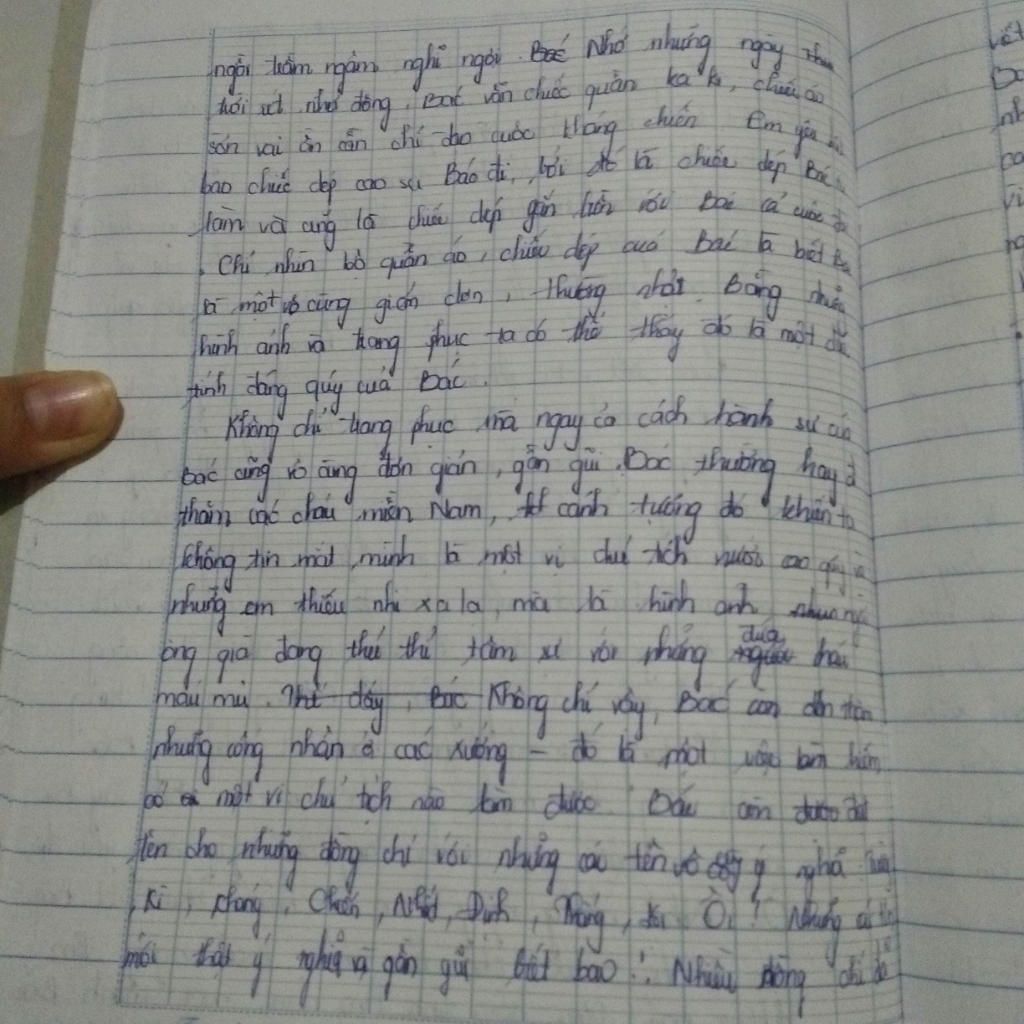 ngồi trầm ngâm nghỉ ngơi. Bác Nhớ những ngày
Bác vẫn chiếc quần ka ki, chiếc áo
sờn vai ân cần chỉ đạo cuộc kháng chiến Em yêu
bao chiếc dép cao su Bác đi, bởi đó là chiếc dép Bác
làm và cũng là chiếc dép gắn liền với Bác cả cuộc
. Chỉ nhìn bộ quần áo, chiếc dép của Bác là biết
là một vô cùng giản đơn, thường nhật. Bằng nhiều
hình ảnh và trang phục ta có thể thấy đó là một
tính đáng quý của Bác.
Không chỉ trang phục mà ngay cả cách hành sử của
Bác cũng vô cùng đơn giản, gần gũi. Bác thường hay
thăm các cháu miền Nam, cảnh tượng đó khiến ta
không tin mắt mình là một vị chủ tịch nước cao quý
những em thiếu nhi xa lạ, mà là hình ảnh như
ông già đang thủ thỉ tâm sự với những đứa
máu mủ. Thế đấy, Bác Không chỉ vậy, Bác còn đến thăm
những công nhân ở các xưởng – đó là một việc làm hiếm
có một vị chủ tịch nào làm được. Bác còn được đặt
tên cho những đồng chí với những cái tên vô ý nghĩa
Kì, Kháng, Chiến, Nhất, Định, Thắng, Ôi! Những cái
mới thật ý nghĩa và gần gũi biết bao! Nhiều đồng chí đã